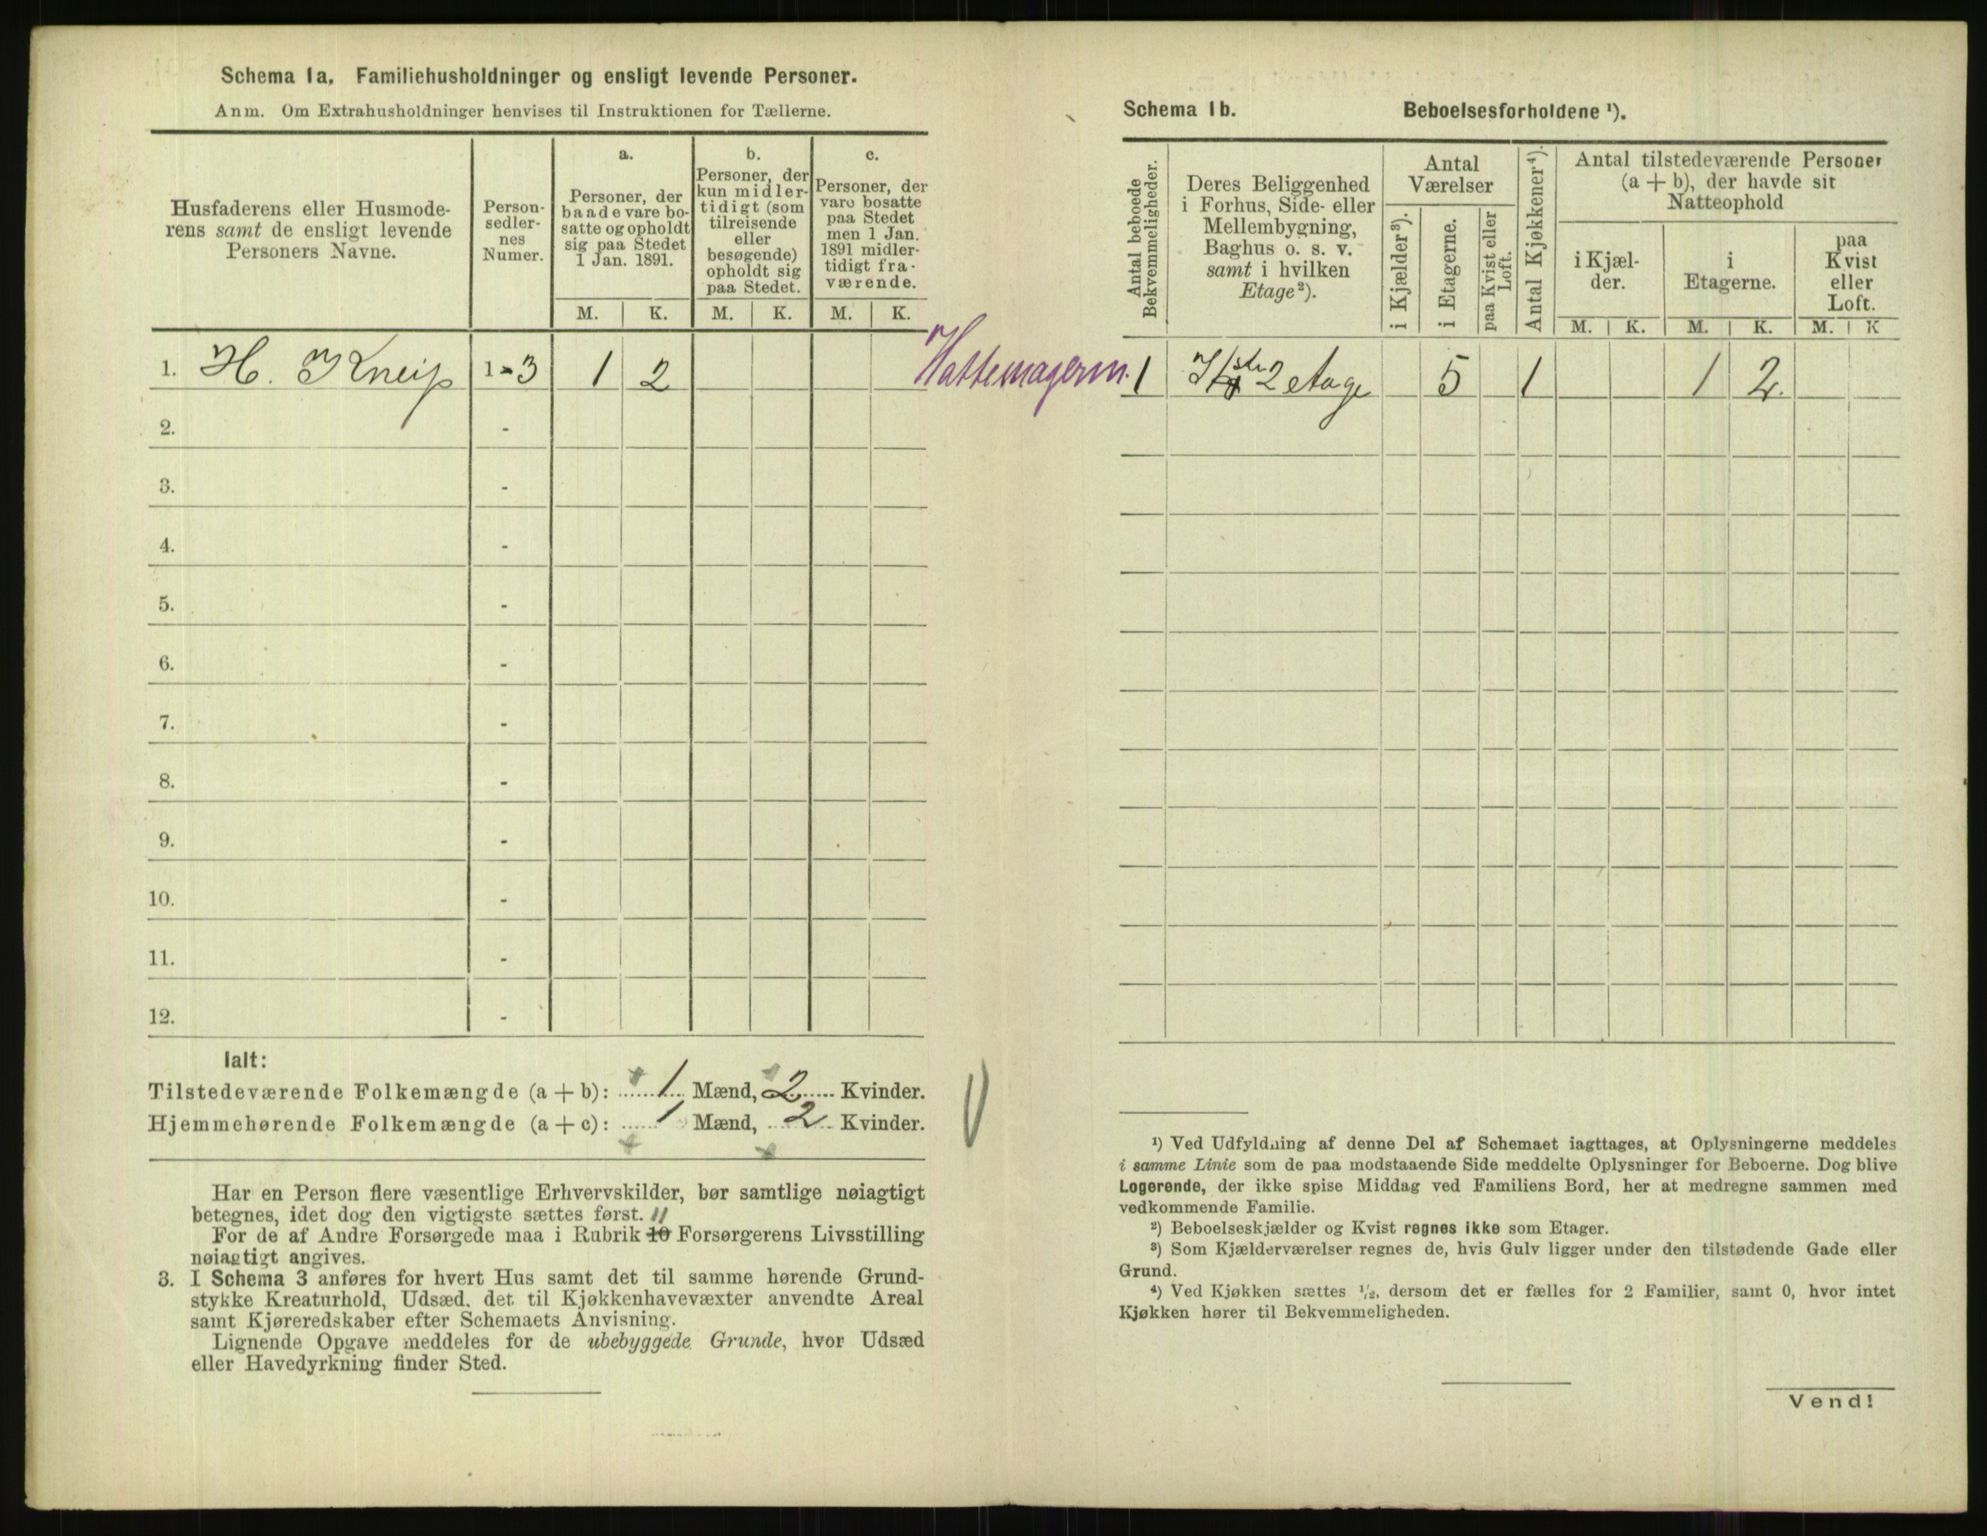 Schema 1a. Familiehusholdninger og ensligt levende Personer.
Anm. Om Extrahusholdninger henvises til Instruktionen for Tællerne.
Husfaderens eller Husmode-
rens samt de ensligt levende
Personers Navne.
Person-
sedler-
nes
Numer.
a.
Personer, der
baade vare bo-
satte og opholdt
sig paa Stedet
1 Jan. 1891.
b.
Personer, der
kun midler-
tidigt (som
tilreisende
eller
besøgende)
opholdt sig
paa Stedet.
c.
Personer, der
vare bosatte
paa Stedet
men 1 Jan.
1891 midler-
tidigt fra-
værende.
M. K. M. K. M. K.
1. H. J Kneip 1-3 1 2
2. -
3. -
4. -
5. -
6. -
7. -
8. -
9. -
10. -
11. -
12. -
Ialt:
Tilstedeværende Folkemængde (a + b): 1 Mænd, 2 Kvinder.
Hjemmehørende Folkemængde (a + c): 1 Mænd, 2 Kvinder.
Har en Person flere væsentlige Erhvervskilder, bør samtlige nøiagtigt
betegnes, idet dog den vigtigste sættes først.
11
For de af Andre Forsørgede maa i Rubrik 10 Forsørgerens Livsstilling
nøiagtigt angives.
3. I Schema 3 anføres for hvert Hus samt det til samme hørende Grund-
stykke Kreaturhold, Udsæd, det til Kjøkkenhavevæxter anvendte Areal
samt Kjøreredskaber efter Schemaets Anvisning.
Lignende Opgave meddeles for de ubebyggede Grunde, hvor Udsæd
eller Havedyrkning finder Sted.
Hattemagerm.
Schema 1b. Beboelsesforholdene ¹).
Antal beboede
Bekvemmeligheder.
Deres Beliggenhed
i Forhus, Side- eller
Mellembygning,
Baghus o. s. v.
samt i hvilken
Etage²).
Antal
Værelser
i Kjælder³).
i Etagerne.
paa Kvist eller
Loft.
Antal Kjøkkener⁴).
Antal tilstedeværende Personer
(a + b), der havde sit
Natteophold
i Kjæl-
der.
i
Etagerne.
paa
Kvist
eller
Loft.
M. K. M. K. M. K
1 2 etage 5 1 1 2.
¹) Ved Udfyldning af denne Del af Schemaet iagttages, at Oplysningerne meddeles
i samme Linie som de paa modstaaende Side meddelte Oplysninger for Beboerne. Dog blive
Logerende, der ikke spise Middag ved Familiens Bord, her at medregne sammen med
vedkommende Familie.
²) Beboelseskjælder og Kvist regnes ikke som Etager.
³) Som Kjælderværelser regnes de, hvis Gulv ligger under den tilstødende Gade eller
Grund.
⁴) Ved Kjøkken sættes ½, dersom det er fælles for 2 Familier, samt 0, hvor intet
Kjøkken hører til Bekvemmeligheden.
Vend!